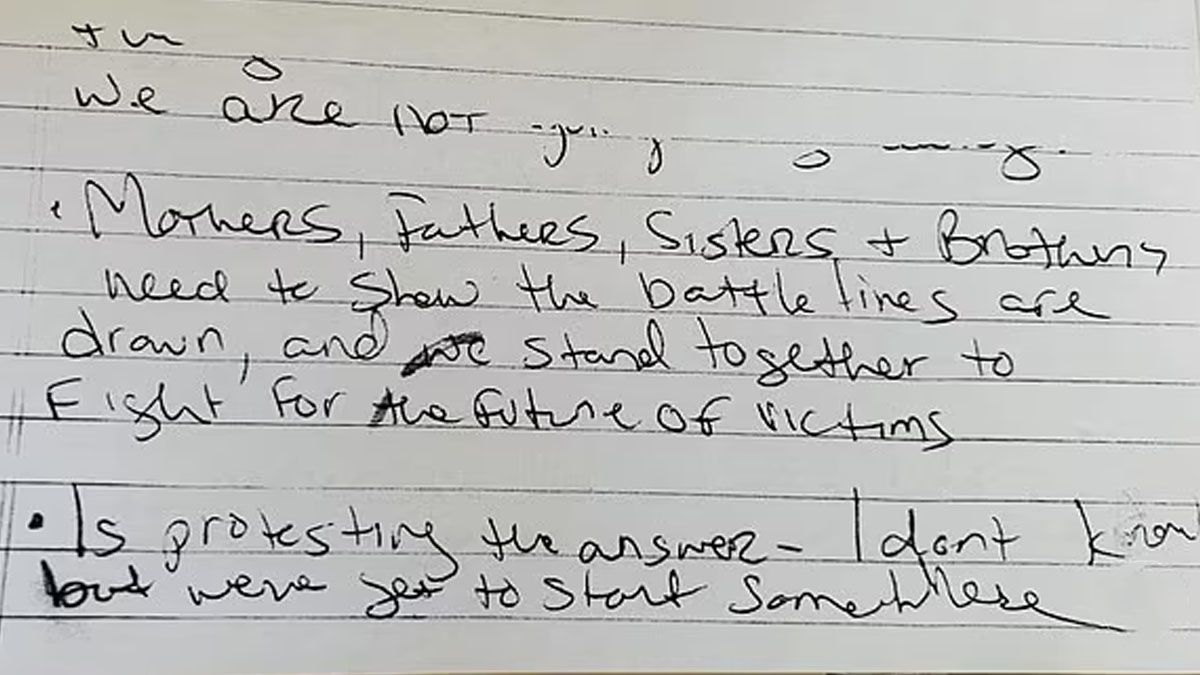 We are not
· Mothers, Fathers, Sisters + Brothers
need to show the battle lines are
drawn, and we stand together to
Fight for the future of victims
· Is protesting the answer - I dont know
but weve got to start somewhere